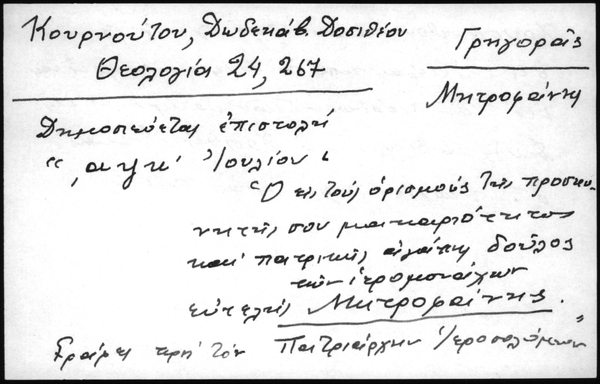 Κουρνούτου, Δωδεκάβ. Δοσιθέου
Θεολογία 24, 267
Γρηγοράς
Μητροφάνης
Δημοσιεύεται ἐπιστολή
"͵αψκ' Ἰουλίου"
"Ὁ εἰς τοὺς ὁρισμοὺς τῆς προσκυ-
νητῆς σου μακαριότητος
καὶ πατρικῆς ἀγάπης δοῦλος
τῶν ἱερομονάχων
εὐτελής Μητροφάνης."
Γράφει πρὸς τὸν Πατριάρχην Ἱεροσολύμων